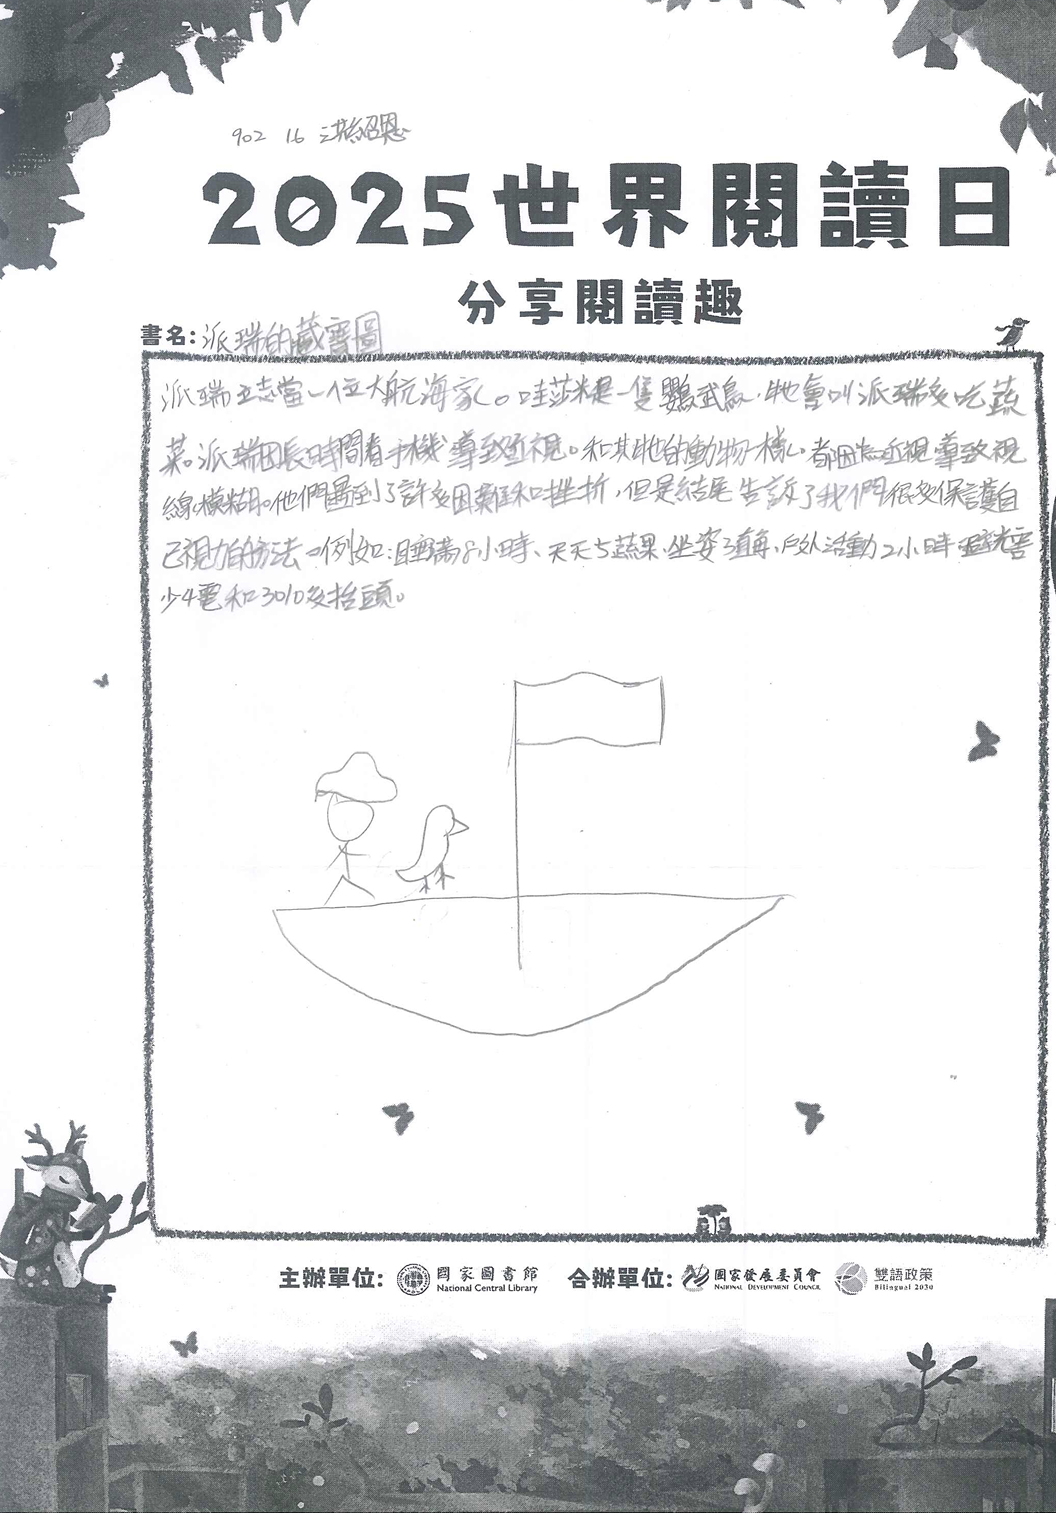 902 16 洪紹恩
2025世界閱讀日
分享閱讀趣
書名:派瑞的藏寶圖
派瑞立志當一位大航海家。哇莎米是一隻鸚武鳥,牠會叫派瑞多吃蔬
菜。派瑞因長時間看手機導致近視。和其他的動物
都因為近視導致視
線模糊。他們遇到了許多困難和挫折,但是結尾告訴了我們很多保護自
己視力的方法。例如:睡滿8小時、天天5蔬果、坐姿
戶外活動2小時
少4電和3010後抬頭。
主辦單位: 國家圖書館 National Central Library 合辦單位: 國家發展委員會 NATIONAL DEVELOPMENT COUNCIL 雙語政策 Bilingual 2030